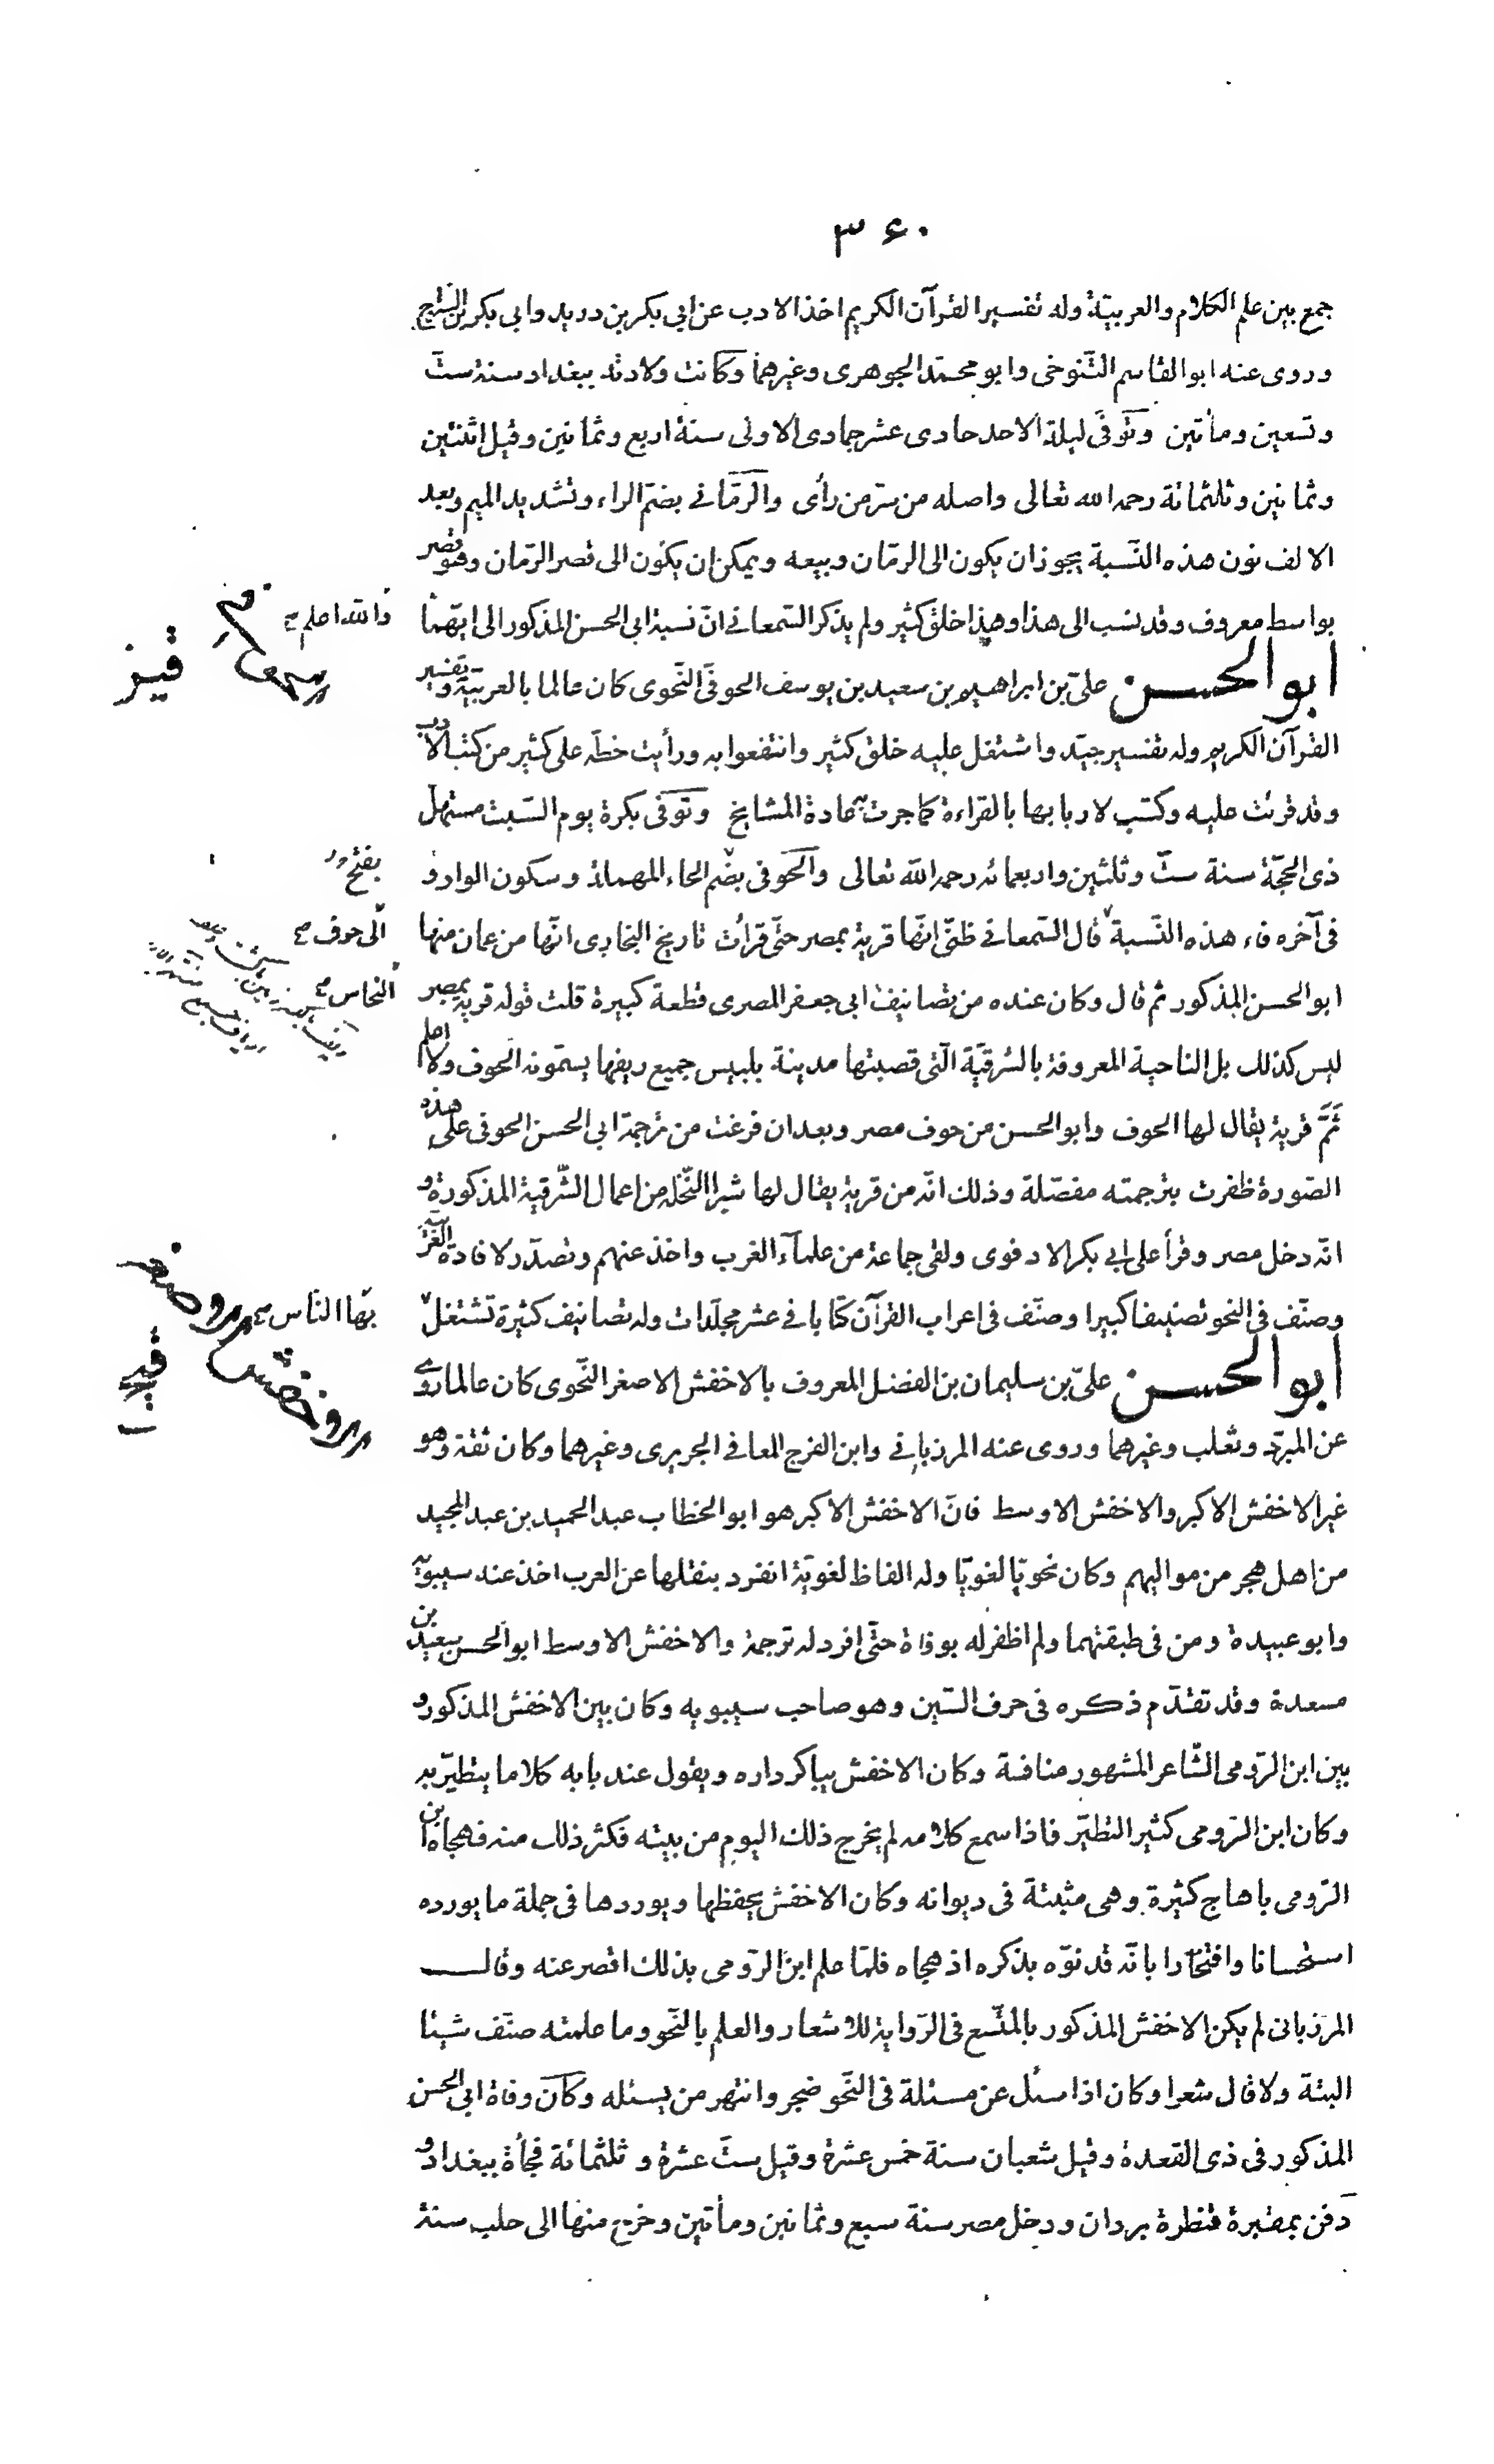 ٣٦٠
جمع بين علم الكلام والعربيّة وله تفسير القرآن الكريم اخذ الادب عن ابي بكر بن دريد وابي بكر بن السّراج
وروى عنه ابو القاسم التّنوخى وابو محمّد الجوهرى وغيرهما وكانت ولادته ببغداد سنة ستّ
وتسعين ومأتين وتوفّى ليلة الاحد حادى عشر جمادى الاولى سنة اربع وثمانين وقيل اثنتين
وثمانين وثلثمائة رحمه الله تعالى واصله من سرّ من رأى والرمّانى بضمّ الراء وتشديد الميم وبعد
الالف نون هذه النّسبة يجوز ان يكون الى الرمّان وبيعه ويمكن ان يكون الى قصر الرّمان وهو قصر
بواسط معروف وقد نسب الى هذا وهذا خلق كثير ولم يذكر السّمعانى انّ نسبة ابى الحسن المذكور الى ايّهما
والله اعلم
ابو الحسن علىّ بن ابراهيم بن سعيد بن يوسف الحوفىّ النّحوى كان عالما بالعربيّة وتفسير
القرآن الكريم وله تفسير جيّد واشتغل عليه خلق كثير وانتفعوا به ورأيت خطّه على كثير من كتب الادب
وقد قرئت عليه وكتب لاربابها بالقراءة كما جرت به عادة المشايخ وتوفى بكرة يوم السّبت مستهلّ
ذى الحجّة سنة ستّ وثلثين واربعمائه رحمه الله تعالى والحوفى بضم الحاء المهملة وسكون الواو و
بفتح
فى آخره فاء هذه النّسبة قال السّمعانى ظنّى انّها قرية بمصر حتّى قرأت تاريخ البخارى انّها من عمان منها
الى حوف
ابو الحسن المذكور ثم قال وكان عنده من تصانيف ابى جعفر المصرى قطعة كبيرة قلت قوله قرية بمصر
النحاس
ليس كذلك بل الناحية المعروفة بالشرقيّة الّتى قصبتها مدينة بلبيس جميع ريفها يسمّونه الحوف ولا اعلم
ثَمَّ قرية يقال لها الحوف وابو الحسن من حوف مصر وبعد ان فرغت من ترجمة ابى الحسن الحوفى على هذه
الصّورة ظفرت بترجمته مفصّلة وذلك انّه من قرية يقال لها شبرا النّخلة من اعمال الشّرقية المذكورة و
انّه دخل مصر وقرأ على ابى بكر الادفوى ولقى جماعة من علمآء الغرب واخذ عنهم وتصدّر لافادة العربية
وصنّف فى النحو تصنيفا كبيرا وصنّف فى اعراب القرآن كتابا فى عشر مجلّدات وله تصانيف كثيرة تشتغل
بها الناس
ابو الحسن علىّ بن سليمان بن الفضل المعروف بالاخفش الاصغر النّحوى كان عالما روى
عن المبرّد وثعلب وغيرهما وروى عنه المرزبانى وابن الفرج المعافى الجريرى وغيرهما وكان ثقة وهو
غير الاخفش الاكبر والاخفش الاوسط فانّ الاخفش الاكبر هو ابو الخطاب عبد الحميد بن عبد المجيد
من اهل هجر من مواليهم وكان نحويّا لغويّا وله الفاظ لغويّة انفرد بنقلها عن العرب اخذ عنه سيبويه
وابو عبيدة ومن فى طبقتهما ولم اظفر له بوفاة حتّى افرد له ترجمة والاخفش الاوسط ابو الحسن سعيد بن
مسعدة وقد تقدّم ذكره فى حرف السّين وهو صاحب سيبويه وكان بين الاخفش المذكور و
بين ابن الرّومى الشّاعر المشهور منافسة وكان الاخفش يباكر داره ويقول عند بابه كلاما يتطيّر به
وكان ابن الرّومى كثير التطيّر فاذا سمع كلامه لم يخرج ذلك اليوم من بيته فكثر ذلك منه فهجاه ابن
الرّومى باهاج كثيرة وهى مثبتة فى ديوانه وكان الاخفش يحفظها ويوردها فى جملة ما يورده
استحسانا وافتخارا بانّه قد نوّه بذكره اذ هجاه فلمّا علم ابن الرّومى بذلك اقصر عنه وقال
المرزبانى لم يكن الاخفش المذكور بالمتّسع فى الرّواية للاشعار والعلم بالنّحو وما علمته صنّف شيئا
البتة ولا قال شعرا وكان اذا سئل عن مسئلة فى النّحو ضجر وانتهر من يسئله وكان وفاة ابى الحسن
المذكور فى ذى القعدة وقيل شعبان سنة خمس عشرة وقيل ستّ عشرة وثلثمائة فجأة ببغداد و
دفن بمقبرة قنطرة بردان ودخل مصر سنة سبع وثمانين ومأتين وخرج منها الى حلب سنة